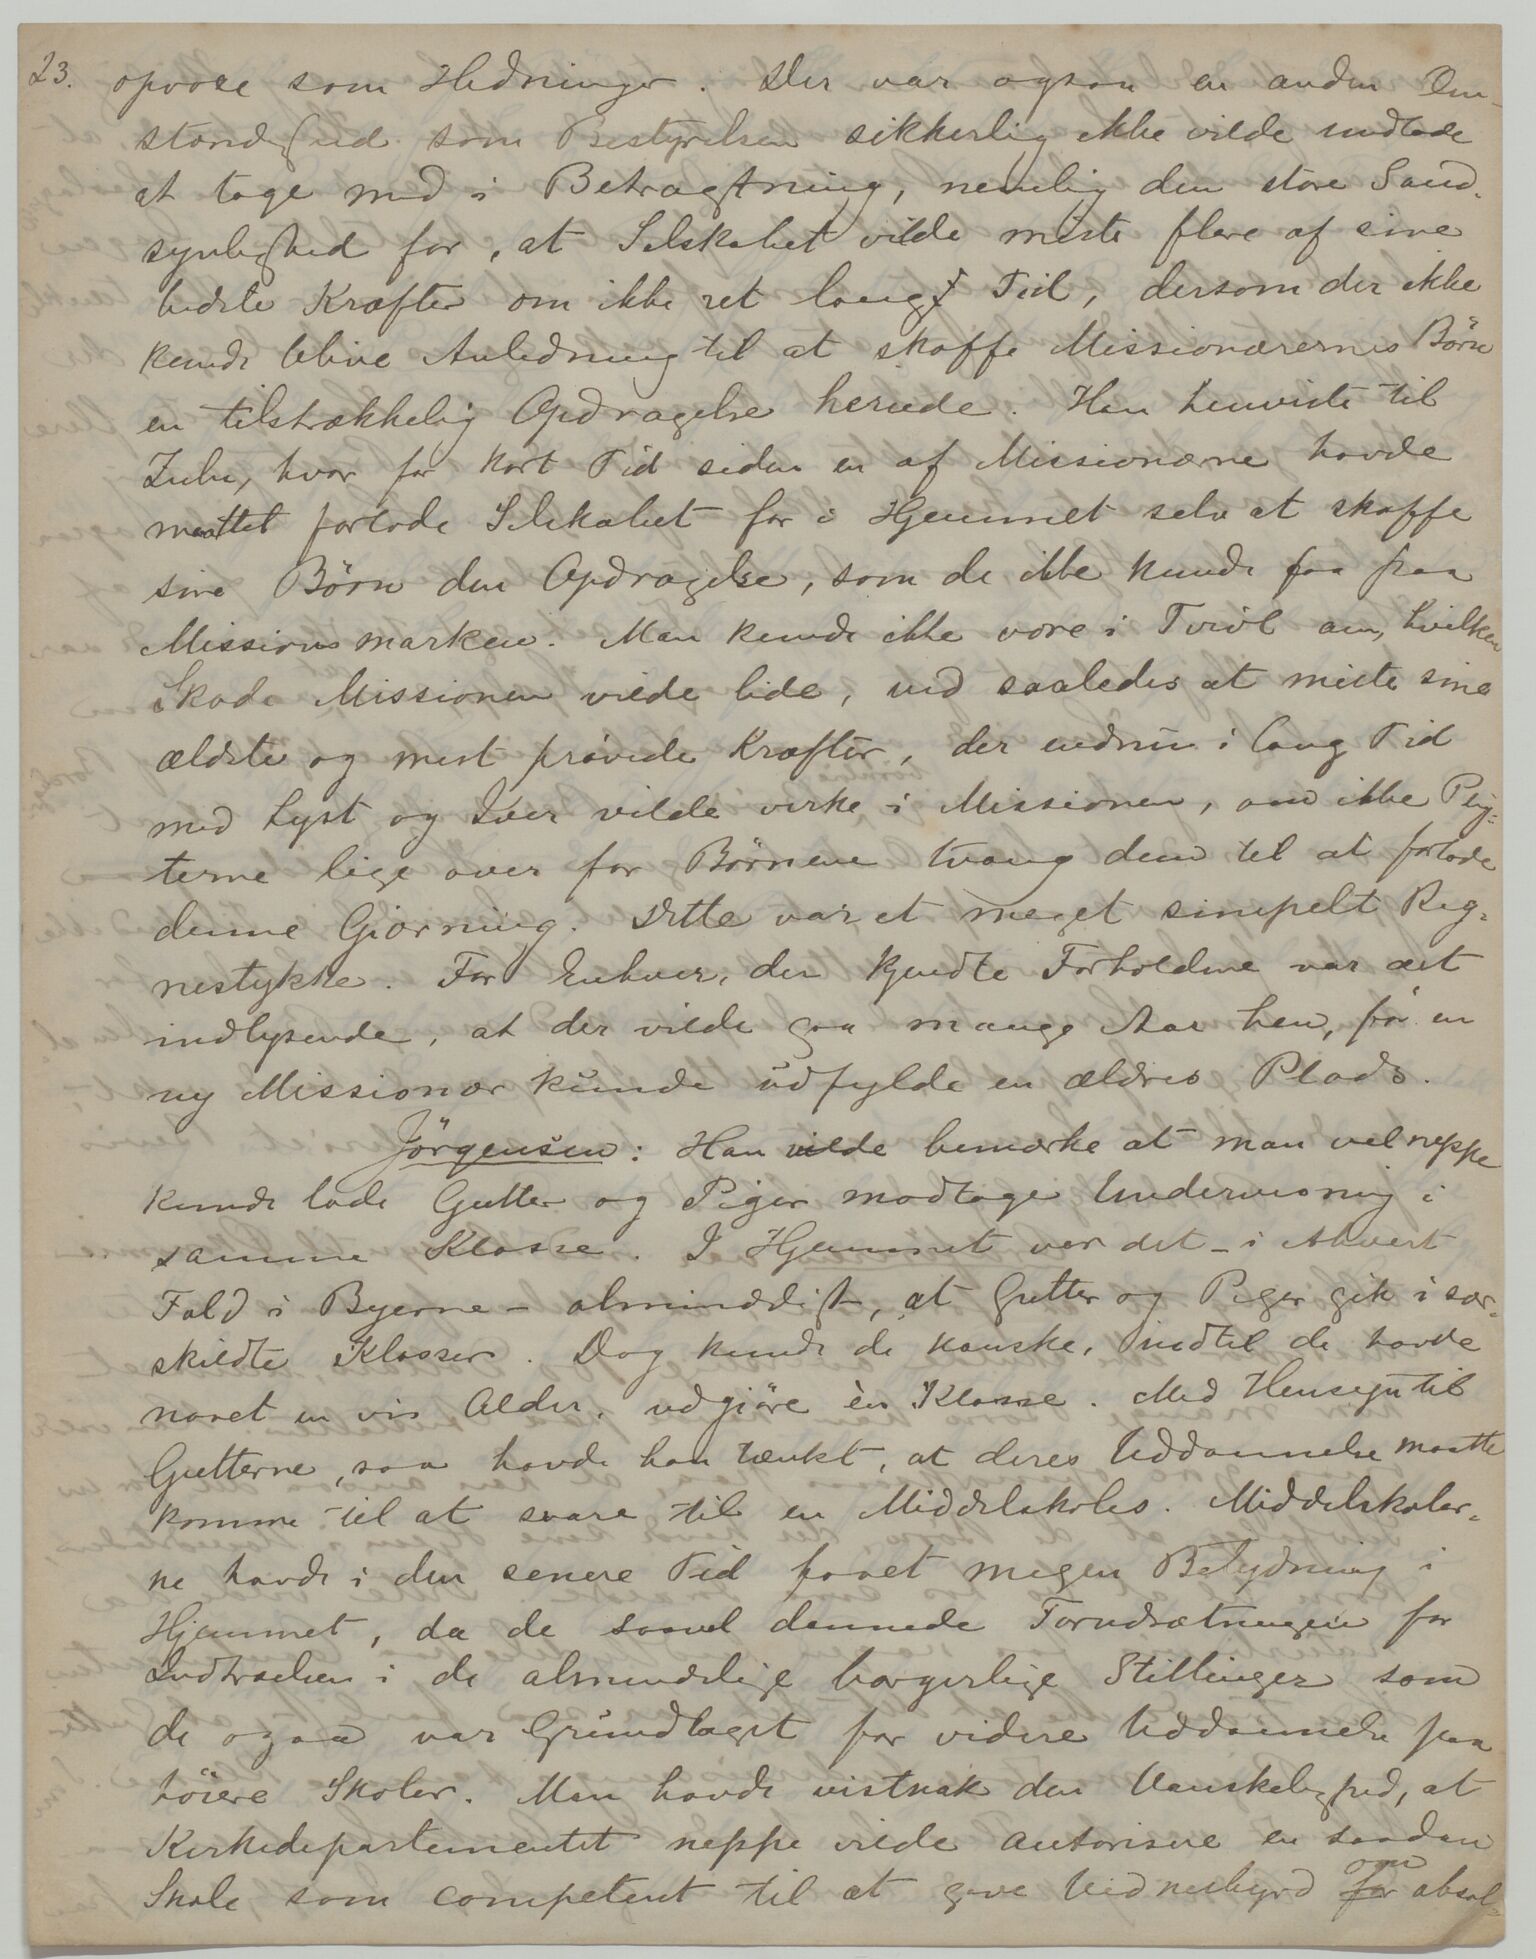 23. opvoxe som Hedninger. Der var ogsaa en anden Om-
stændighed som Bestyrelsen sikkerlig ikke vilde undlade
at tage med i Betragtning, nemlig den store Sand-
synlighed for, at Selskabet vilde miste flere af sine
bedste Kræfter om ikke ret langt Tid, dersom der ikke
kunde blive Anledning til at skaffe Missionærernes Börn
en tilstrækkelig Opdragelse herude. Han henviste til
Zulu, hvor for kort Tid siden en af Missionærne havde
maattet forlade Selskabet for i Hjemmet selv at skaffe
sine Börn den Opdragelse, som de ikke kunde faa paa
Missionsmarken. Man kunde ikke være i Tvivl om, hvilken
Skade Missionen vilde lide, ved saaledes at miste sine
ældste og mest prövede Kræfter, der endnu i lang Tid
med Lyst og Iver vilde virke i Missionen, om ikke Plig-
terne lige over for Börnene tvang dem til at forlade
denne Gjerning. Dette var et meget simpelt Reg-
nestykke. For Enhver, der kjendte Forholdene var det
indlysende, at der vilde gaa mange Aar hen, för en
ny Missionær kunde udfylde en ældres Plads.
Jörgensen: Han vilde bemærke at man vel neppe
kunde lade Gutter og Piger modtage Undervisning i
samme Klasse. I Hjemmet var det - i ethvert
Fald i Byerne - almindeligt, at Gutter og Piger gik i sær-
skildte Klasser. Dog kunde de kanske, indtil de havde
naaet en vis Alder, udgjöre èn Klasse. Med Hensyn til
Gutterne, saa havde han tænkt, at deres Uddannelse maatte
komme til at svare til en Middelskoles. Middelskoler-
ne havde i den senere Tid faaet megen Betydning i
Hjemmet, da de saavel dannede Forudsætningen for
Indtrædelsen i de almindelige borgerlige Stillinger som
de ogsaa var Grundlaget for videre Uddannelse paa
höiere Skoler. Man havde vistnok den Vanskelighed, at
Kirkedepartementet neppe vilde autorisere en saadan
Skole som competent til at give Vidnesbyrd for om absol-